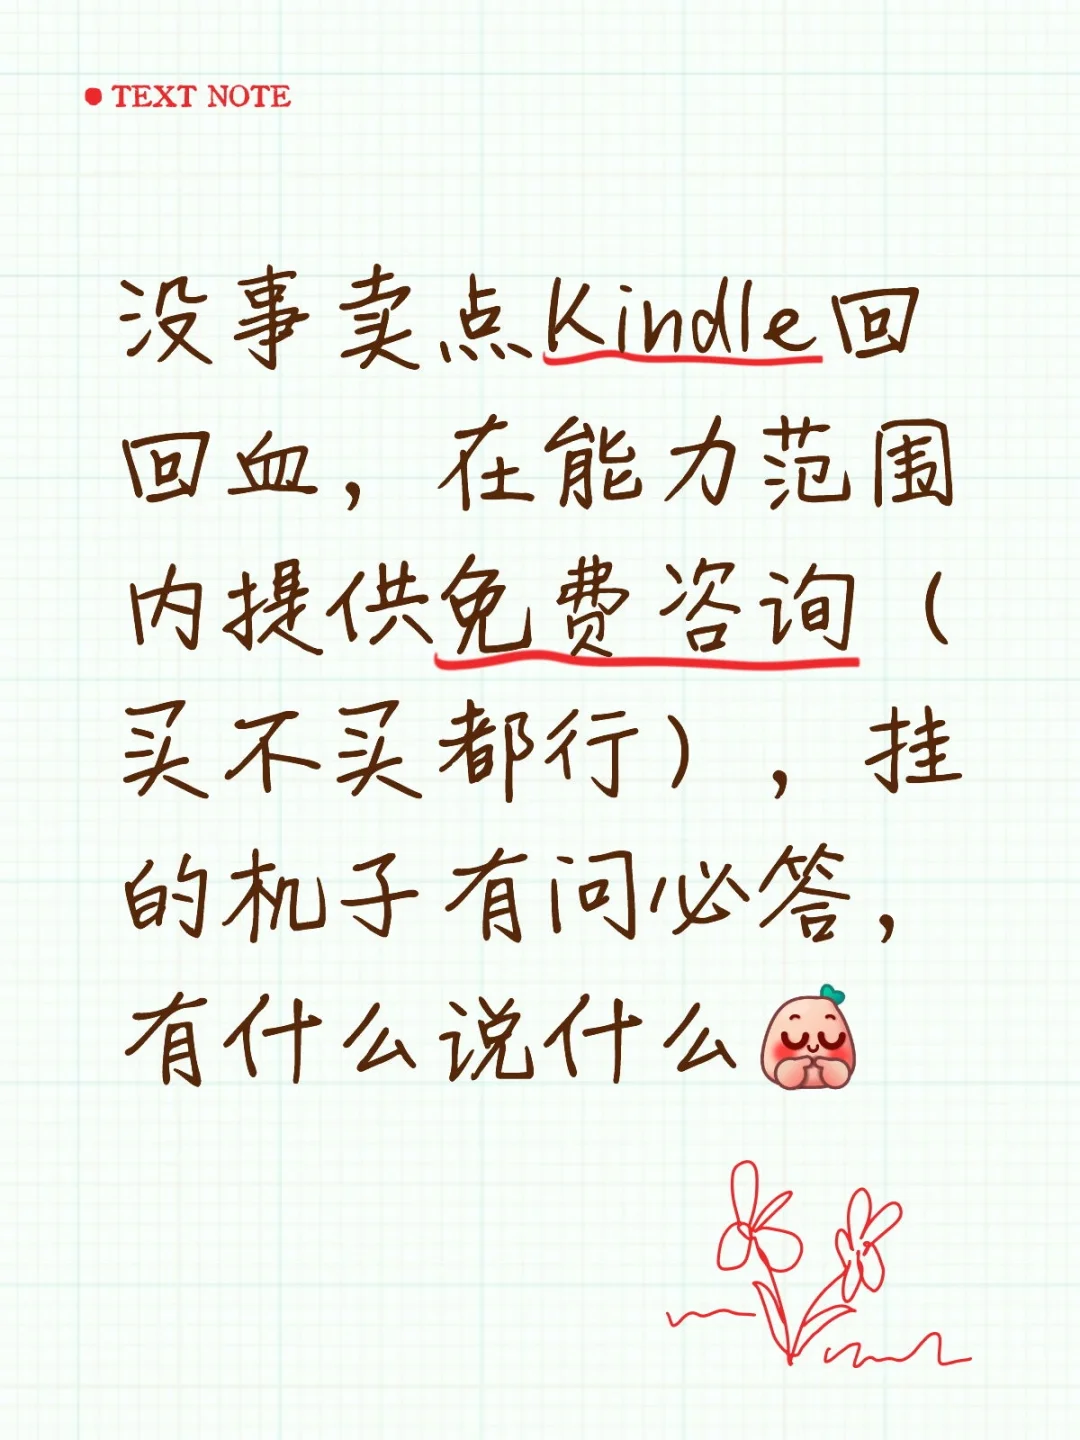 TEXT NOTE
没事卖点Kindle回
回血，在能力范围
内提供免费咨询（
买不买都行），挂
的机子有问必答，
有什么说什么